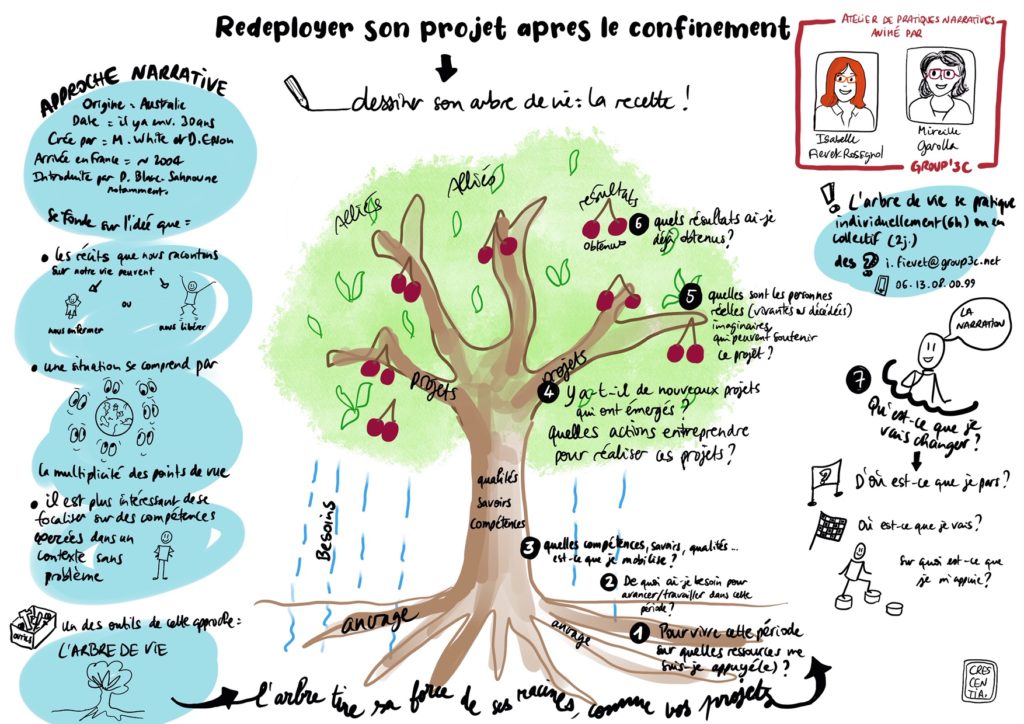 Redeployer son projet apres le confinement
dessiner son arbre de vie : la recette !
ATELIER DE PRATIQUES NARRATIVES
ANIMÉ PAR
Isabelle
Fievet Rossignol
Mireille
Garolla
GROUP'3C
APPROCHE NARRATIVE
Origine = Australie
Date = il y a env. 30 ans
Créé par = M. White et D.
Arrivée en France = ~ 2004
Introduite par D. Blanc-Sahnoune
notamment.
Se fonde sur l'idée que =
• les récits que nous racontons
sur notre vie peuvent
ou
nous enfermer
nous libérer
• une situation se comprend par
la multiplicité des points de vue
• il est plus intéressant de se
focaliser sur des compétences
exercées dans un
contexte sans
problème
outils
Un des outils de cette approche =
L'ARBRE DE VIE
Alliés
Alliés
résultats
obtenus
6 quels résultats ai-je
déjà obtenus ?
5 quelles sont les personnes
réelles (vivantes ou décédées)
imaginaires
qui peuvent soutenir
ce projet ?
projets
projets
4 Y a-t-il de nouveaux projets
qui ont émergés ?
quelles actions entreprendre
pour réaliser ces projets ?
qualités
savoirs
compétences
Besoins
3 quelles compétences, savoirs, qualités...
est-ce que je mobilise ?
2 De quoi ai-je besoin pour
avancer/travailler dans cette
période ?
ancrage
ancrage
1 Pour vivre cette période
sur quelles ressources me
suis-je appuyé(e) ?
l'arbre tire sa force de ses racines, comme vos projets
! L'arbre de vie se pratique
individuellement (6h) ou en
collectif (2j.)
des ? i.fievet@group3c.net
06.13.08.00.99
LA
NARRATION
7
Qu'est-ce que je
vais changer ?
? D'où est-ce que je pars ?
Où est-ce que je vais ?
Sur quoi est-ce que
je m'appuie ?
CRES
CEN
TIA.